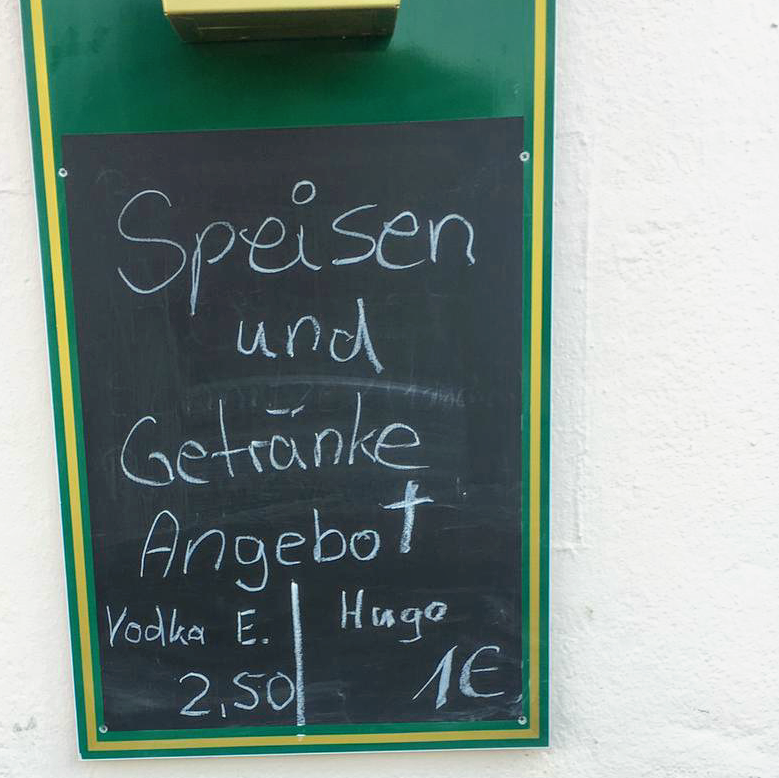 Speisen
und
Getränke
Angebot
Vodka E. | Hugo
2,50 | 1€